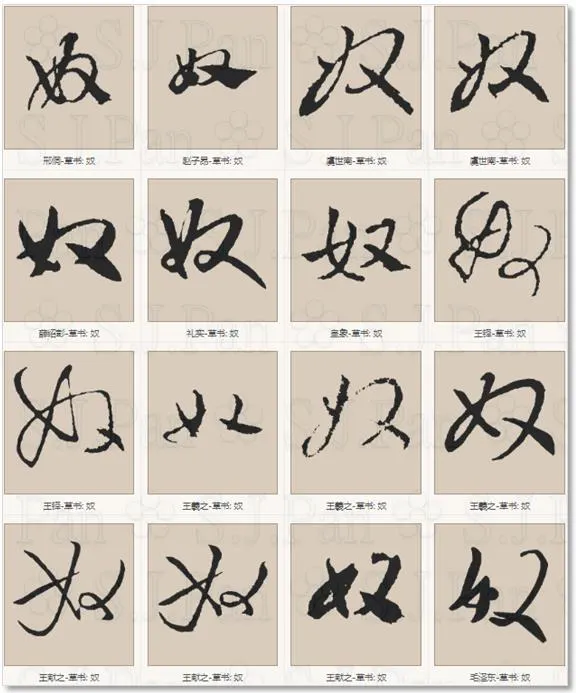 奴 奴 奴 奴
邢侗-草书: 奴 赵子昂-草书: 奴 虞世南-草书: 奴 虞世南-草书: 奴
奴 奴 奴 奴
薛绍彭-草书: 奴 礼实-草书: 奴 皇象-草书: 奴 王铎-草书: 奴
奴 奴 奴 奴
王铎-草书: 奴 王羲之-草书: 奴 王羲之-草书: 奴 王羲之-草书: 奴
奴 奴 奴 奴
王献之-草书: 奴 王献之-草书: 奴 王献之-草书: 奴 毛泽东-草书: 奴
S.J.Pan